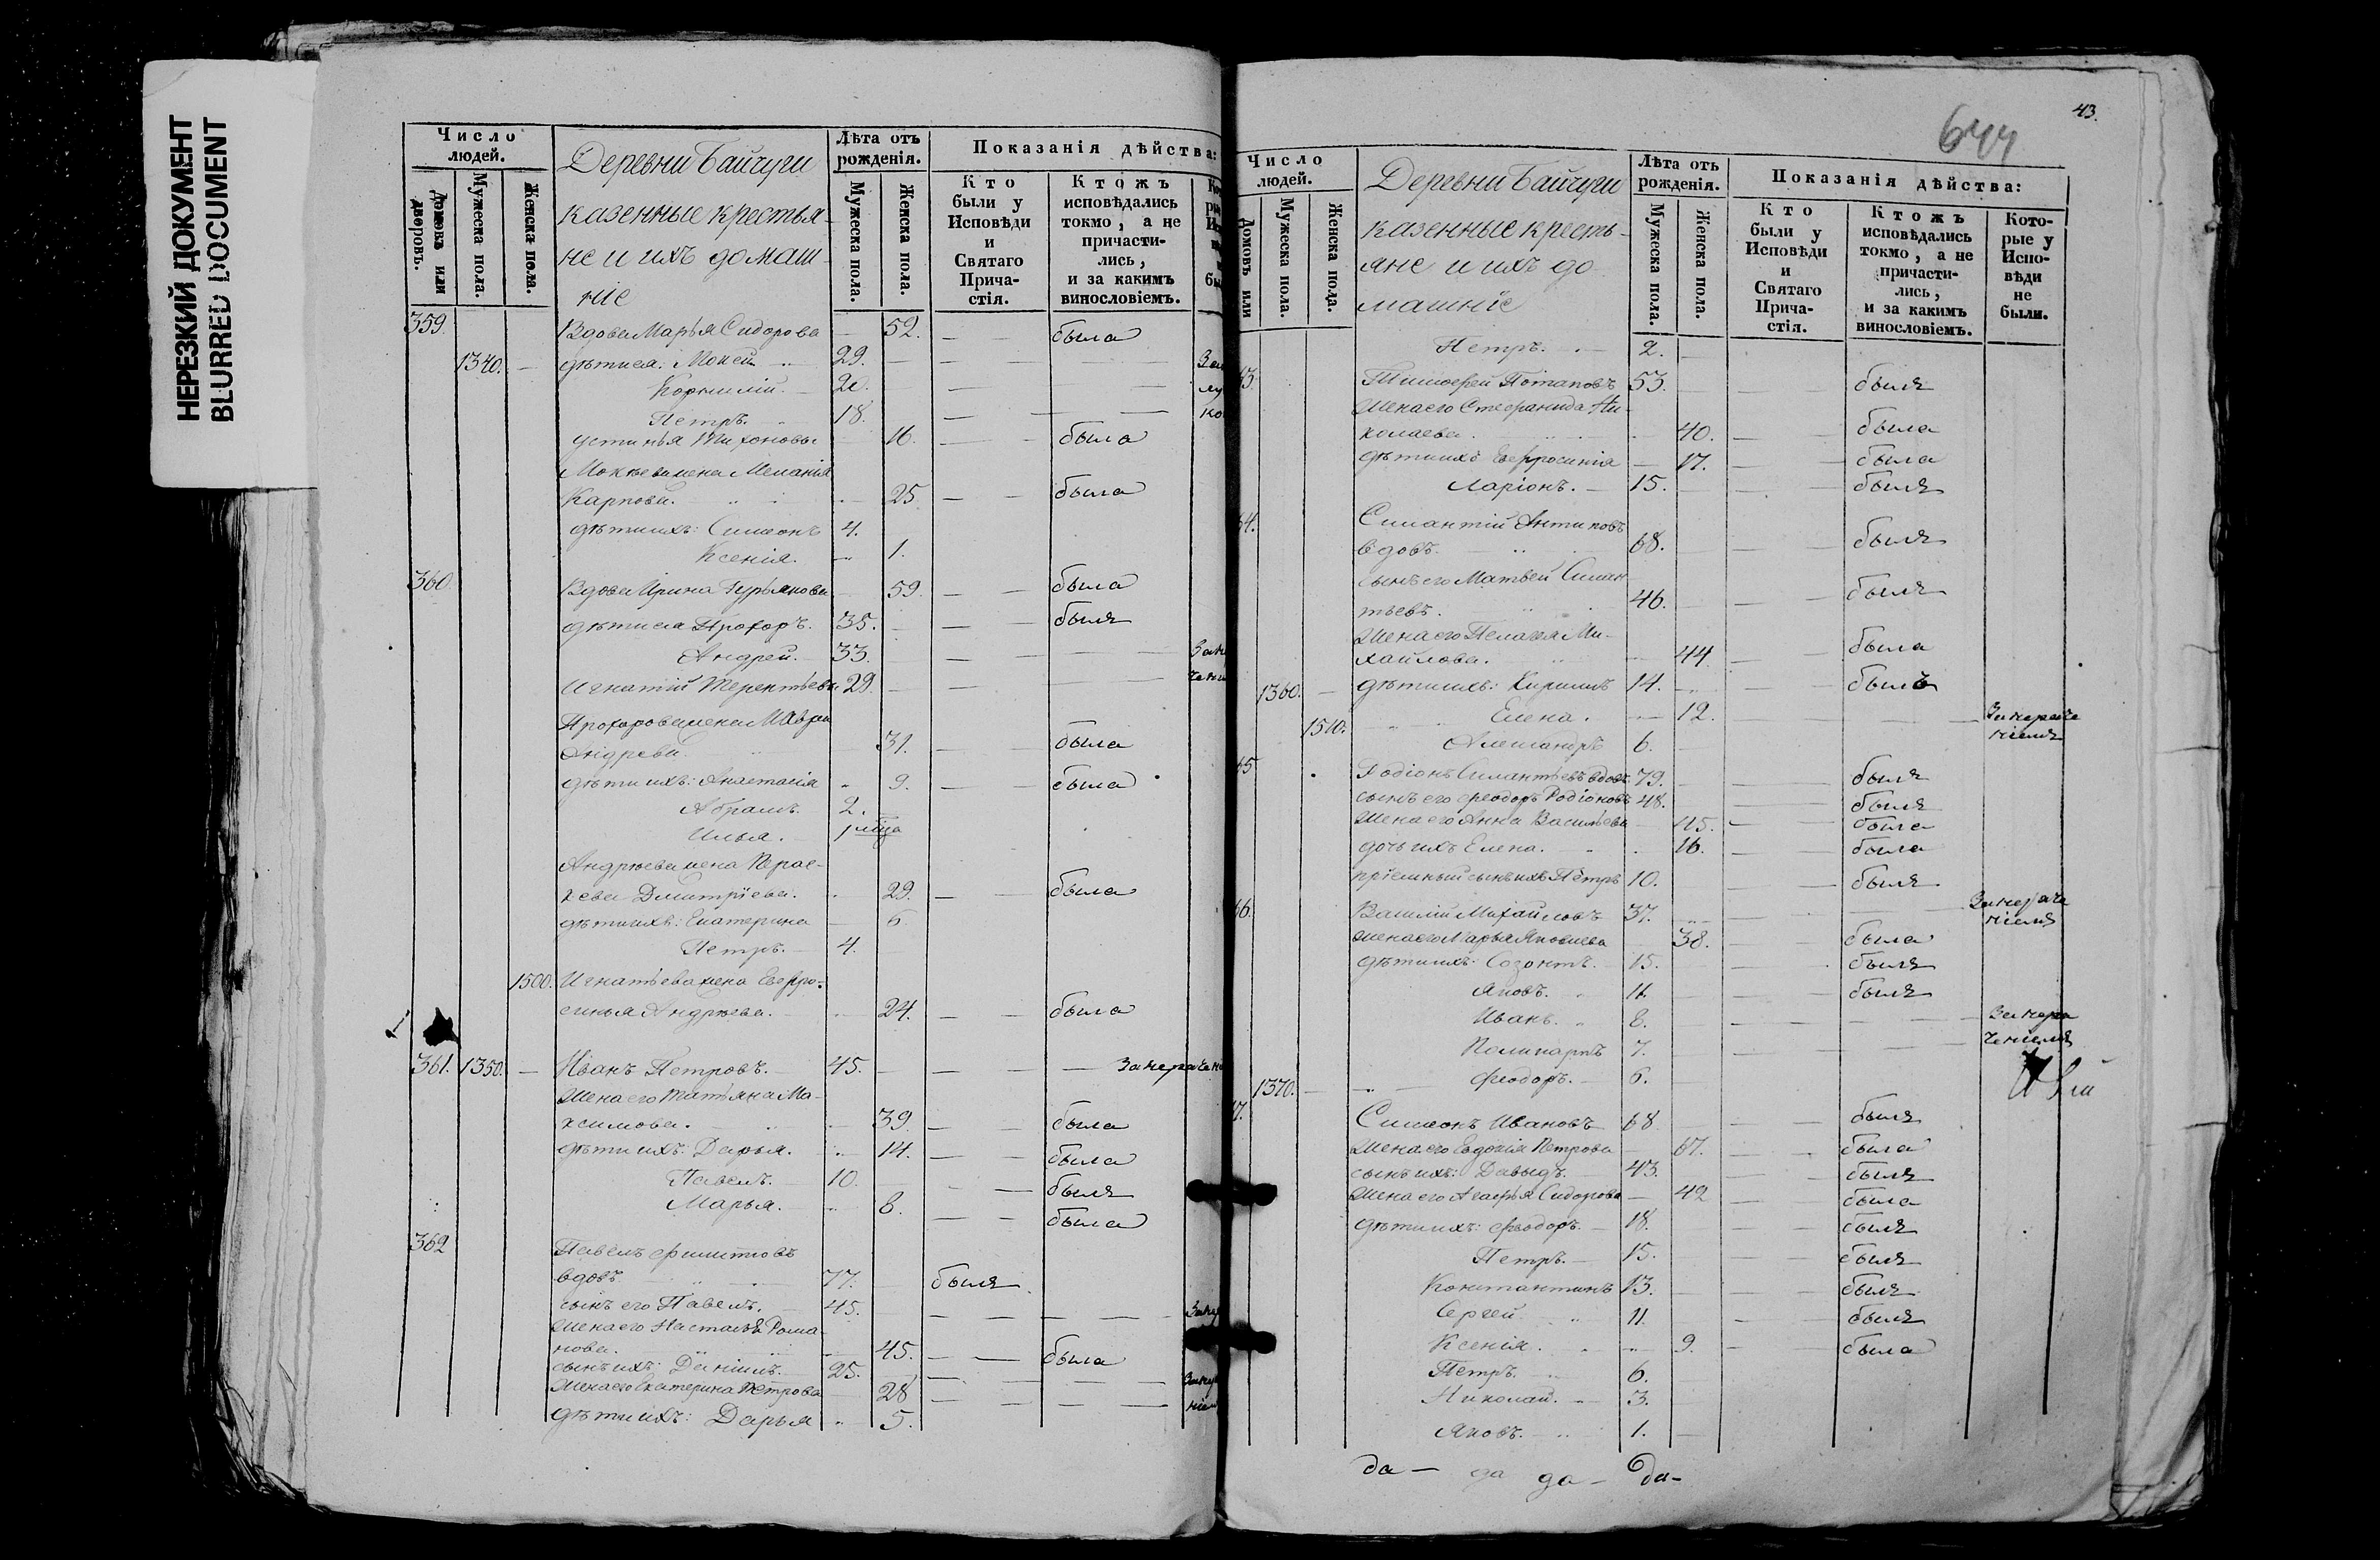 НЕРЕЗКИЙ ДОКУМЕНТ
BLURRED DOCUMENT
Число людей.
Домовъ или дворовъ.
Мужеска пола.
Женска пола.
Деревни Байчуги
казенные крестья-
не и ихъ домаш-
ніе
Лѣта отъ рожденія.
Мужеска пола.
Женска пола.
Показанія дѣйства:
Кто были у Исповѣди и Святаго Прича-стія.
Ктожъ исповѣдались токмо, а не причасти-лись, и за какимъ винословіемъ.
359. Вдова Марья Сидорова 52. была
1340. дѣти ея: Мокей 29.
Корнилій. 20.
Петръ. 18.
Устинья Тихонова 16. была
Мокѣева жена Меланія
Карпова. 25 была
дѣти ихъ: Симеонъ 4.
Ксенія. 1.
360 Вдова Ирина Гурьянова 59. была
дѣти ея Прохоръ. 35. былъ
Андрей. 33.
Игнатій Терентьевъ 29.
Прохорова жена Мавра
Андреева. 31. была
дѣти ихъ: Анастасія 9. была
Абрамъ. 2.
Илья. 1 мѣца
Андрѣева жена Парас-
кева Дмитріева. 29. была
дѣти ихъ: Екатерина 6.
Петръ. 4.
1500. Игнатьева жена Евфро-
синья Андрѣева. 24. была
361. 1350. Иванъ Петровъ. 45.
Жена его Татьяна Ма-
ксимова. 39. была
дѣти ихъ: Дарья. 14. была
Павелъ. 10. былъ
Марья. 8. была
362 Павелъ Филиповъ
вдовъ 77. былъ
сынъ его Павелъ. 45.
Жена его Настасья Рома-
нова. 45. была
сынъ ихъ: Даніилъ. 25.
Жена его Екатерина Петрова 28
дѣти ихъ: Дарья 5.
43.
644
Число людей.
Домовъ или
Мужеска пола.
Женска пола.
Деревни Байчуги
казенные кресть-
яне и ихъ до
машніе
Лѣта отъ рожденія.
Мужеска пола.
Женска пола.
Показанія дѣйства:
Кто были у Исповѣди и Святаго Прича-стія.
Ктожъ исповѣдались токмо, а не причасти-лись, и за какимъ винословіемъ.
Кото-рые у Испо-вѣди не были.
Петръ. 2.
Тимофей Потаповъ 53. былъ
Жена его Стефанида Ни-
колаева. 40. была
дѣти ихъ Евфросинія 17. была
Ларіонъ. 15. былъ
Силантій Антиповъ
вдовъ. 68. былъ
сынъ его Матвей Силан-
тьевъ. 46. былъ
Жена его Пелагея Ми-
хайлова. 44 была
1360. дѣти ихъ: Кирилъ 14. былъ
1510. Елена. 12.
Александръ 6.
Родіонъ Силантьевъ вдовъ 79. былъ
сынъ его Феодоръ Родіоновъ 48. былъ
Жена его Анна Васильева 45. была
дочь ихъ Елена. 16. была
пріемный сынъ ихъ Петръ 10. былъ
Василій Михайловъ 37.
жена его Марья Яковлева 38. была
дѣти ихъ: Созонтъ. 15. былъ
Яковъ. 11. былъ
Иванъ. 8.
Поликарпъ 7.
1370. Феодоръ. 6.
Симеонъ Ивановъ 68 былъ
Жена его Евдокія Петрова 67. была
сынъ ихъ: Давыдъ. 43. былъ
Жена его Агафья Сидорова 42 была
дѣти ихъ: Феодоръ. 18. былъ
Петръ. 15. былъ
Константинъ 13. былъ
Сергей 11. былъ
Ксенія. 9. была
Петръ. 6.
Николай. 3.
Яковъ. 1.
да— да да— да—